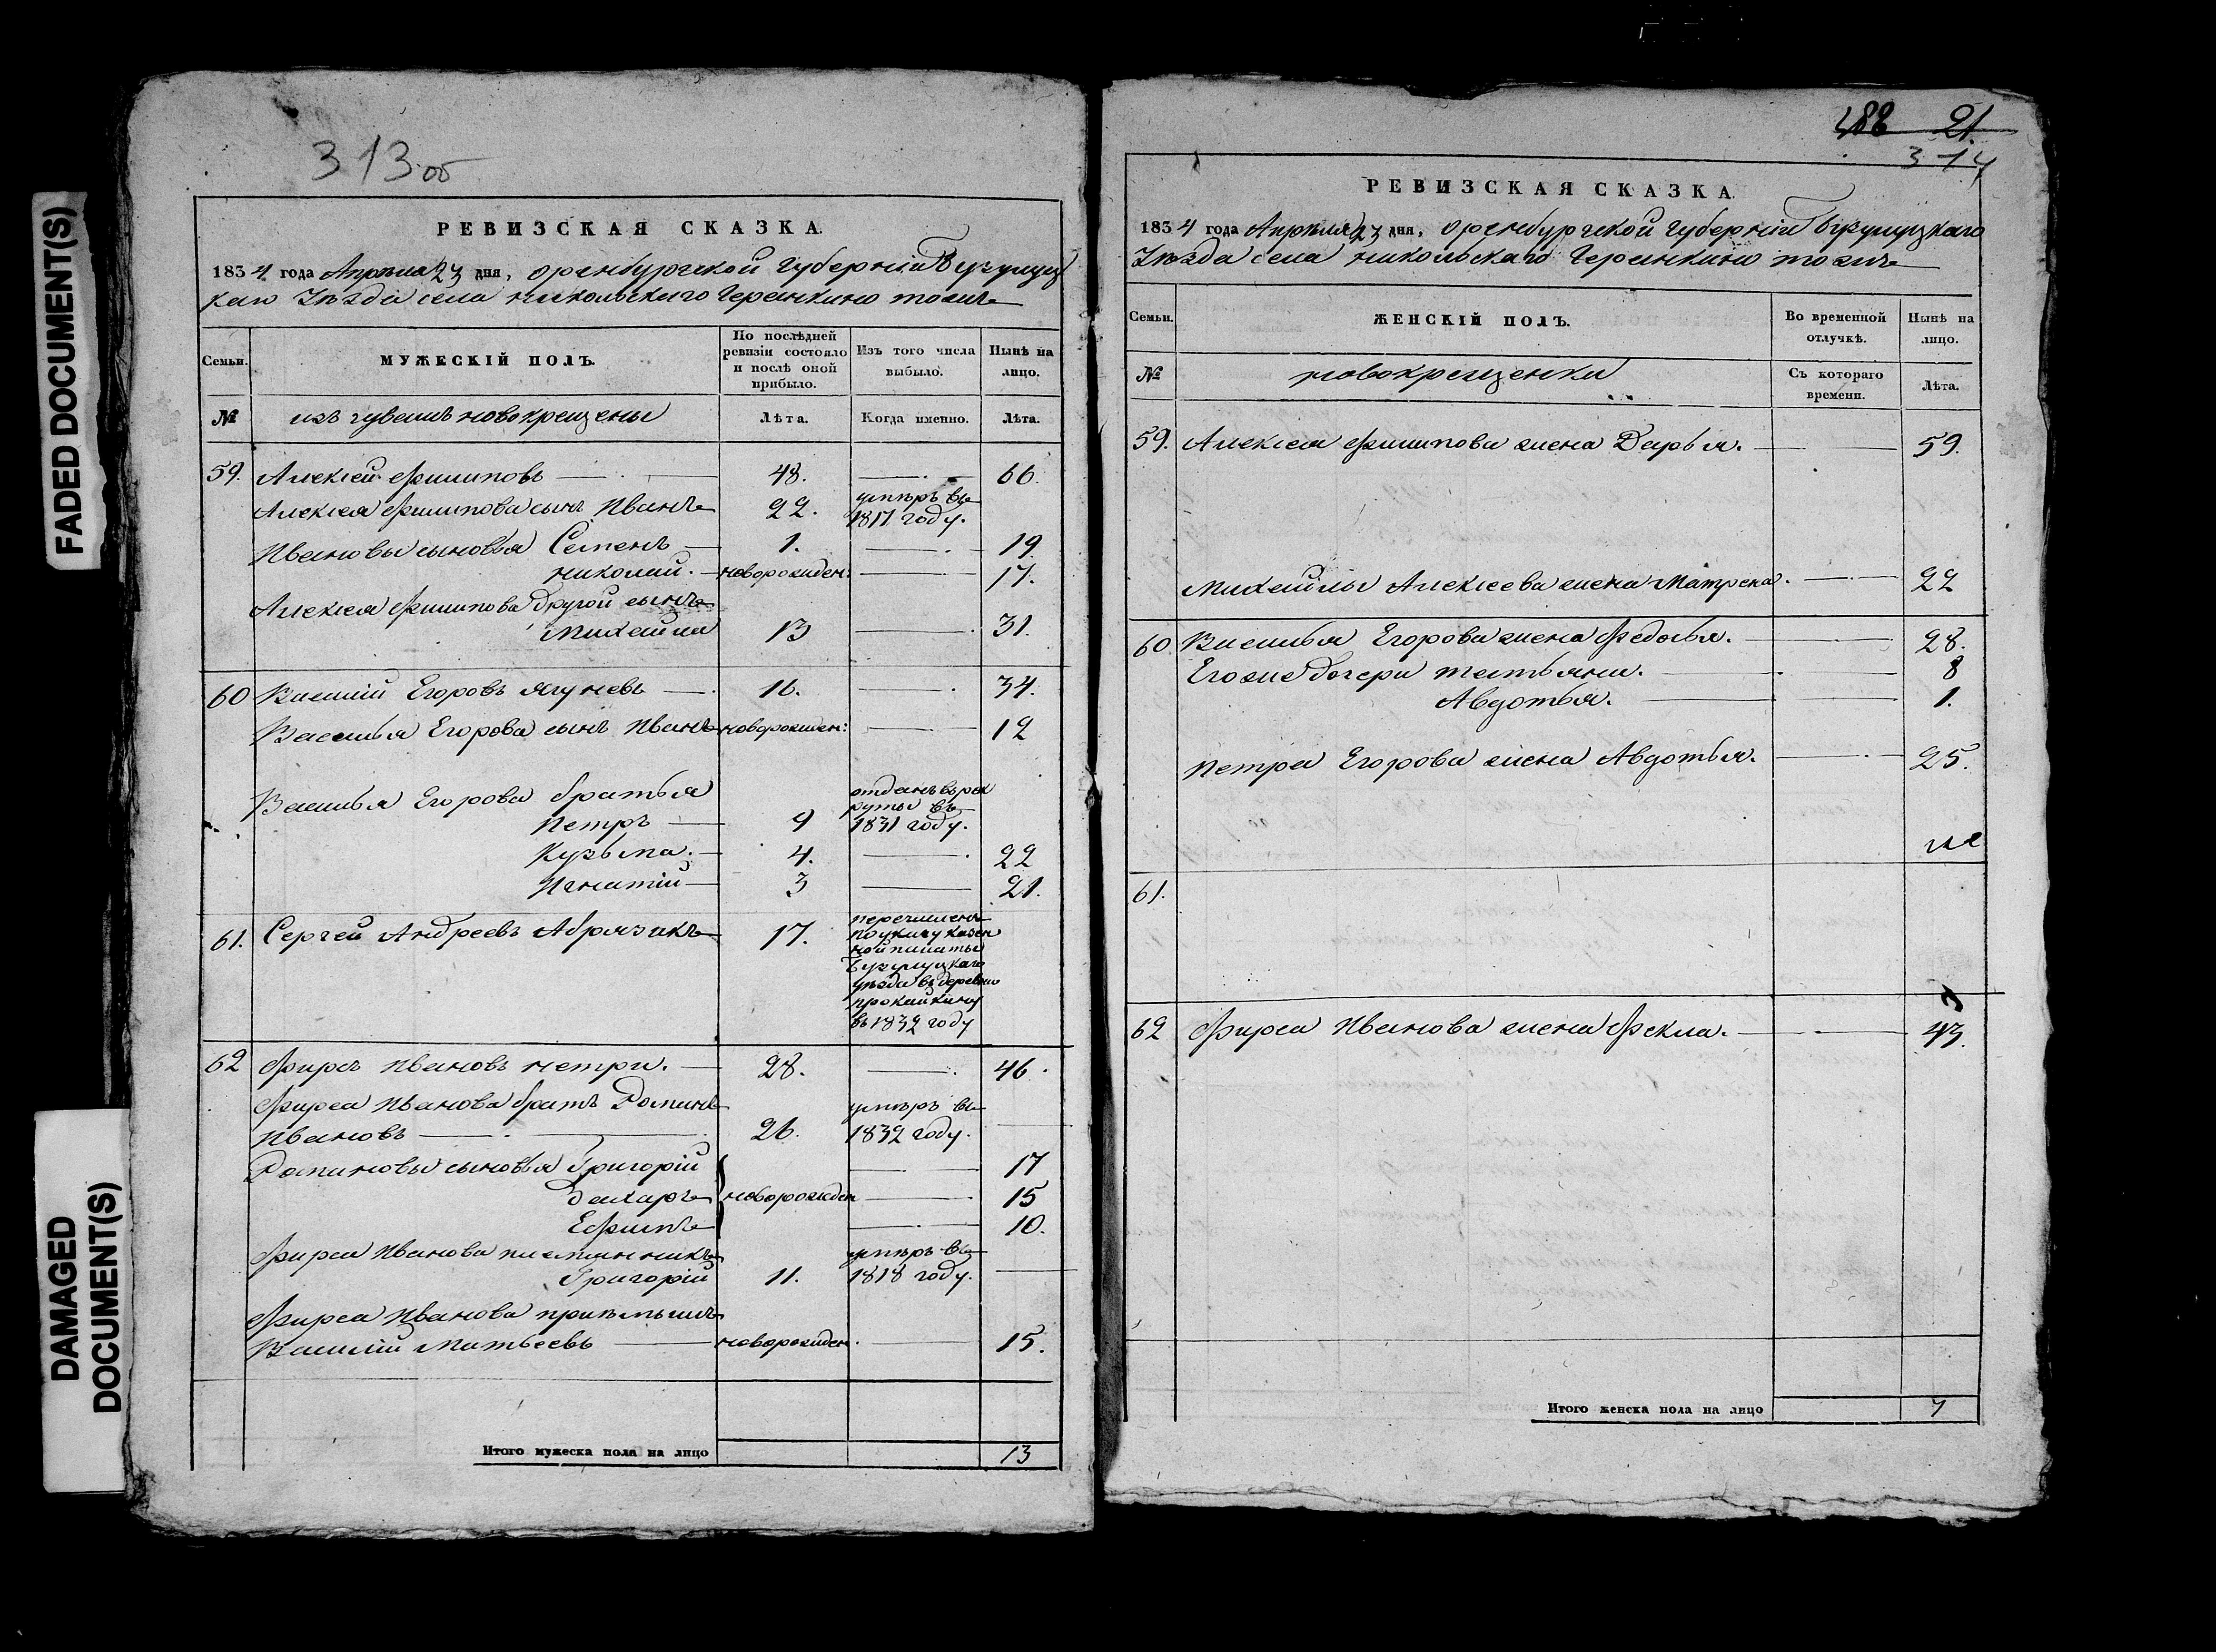 FADED DOCUMENT(S)
DAMAGED
DOCUMENT(S)
313 об
РЕВИЗСКАЯ СКАЗКА.
1834 года Апреля 23 дня, Оренбургской Губернии Бугульц
каго Уезда села Никольскаго Черенкино тожъ
Семьи.
МУЖЕСКІЙ ПОЛЪ.
По послѣдней
ревизіи состояло
и послѣ оной
прибыло.
Изъ того числа
выбыло.
Нынѣ на
лицо.
№
изъ чувашъ новокрещены
Лѣта.
Когда именно.
Лѣта.
59. Алексей Филиповъ 48. 66.
Алексея Филипова сынъ Иванъ 22. умеръ въ
1817 году.
Ивановы сыновья Семенъ 1. 19
Николай. новорожден: 17.
Алексея Филипова другой сынъ
Михайла 13 31.
60 Василий Егоровъ 16. 34.
Василья Егорова сынъ Иванъ новорожден: 12
Василья Егорова братья
Петръ 9 отданъ въ рек
руты въ
1831 году.
Кузьма. 4. 22
Игнатій 3 21.
61. Сергей Андреевъ 17. перечисленъ
по указу казен
ной палаты
уезда въ деревню
въ 1832 году
62 Фирсъ Ивановъ 28. 46.
Фирса Иванова братъ Романъ
Ивановъ 26. умеръ въ
1832 году.
Романовы сыновья Григорій 17
Захаръ новорожден 15
Ефимъ 10.
Фирса Иванова племянникъ
Григорій 11. умеръ въ
1818 году.
Фирса Иванова приемышъ
Василій Матвеевъ новорожден. 15.
Итого мужеска пола на лицо 13
188 21.
314
РЕВИЗСКАЯ СКАЗКА.
1834 года Апреля 23 дня, Оренбургской Губерніи
Уезда села Никольскаго Черенкино тожъ
Семьи.
ЖЕНСКІЙ ПОЛЪ.
Во временной
отлучкѣ.
Нынѣ на
лицо.
№
новокрещенки
Съ котораго
времени.
Лѣта.
59. Алексея Филипова жена Дарья. 59.
Михайлы Алексеева жена Матрена. 22
60 Василья Егорова жена Федосья. 28.
Его же дочери Татьяна. 8
Авдотья. 1.
Петра Егорова жена Авдотья. 25.
61.
62 Фирса Иванова жена Фекла. 43.
Итого женска пола на лицо 7